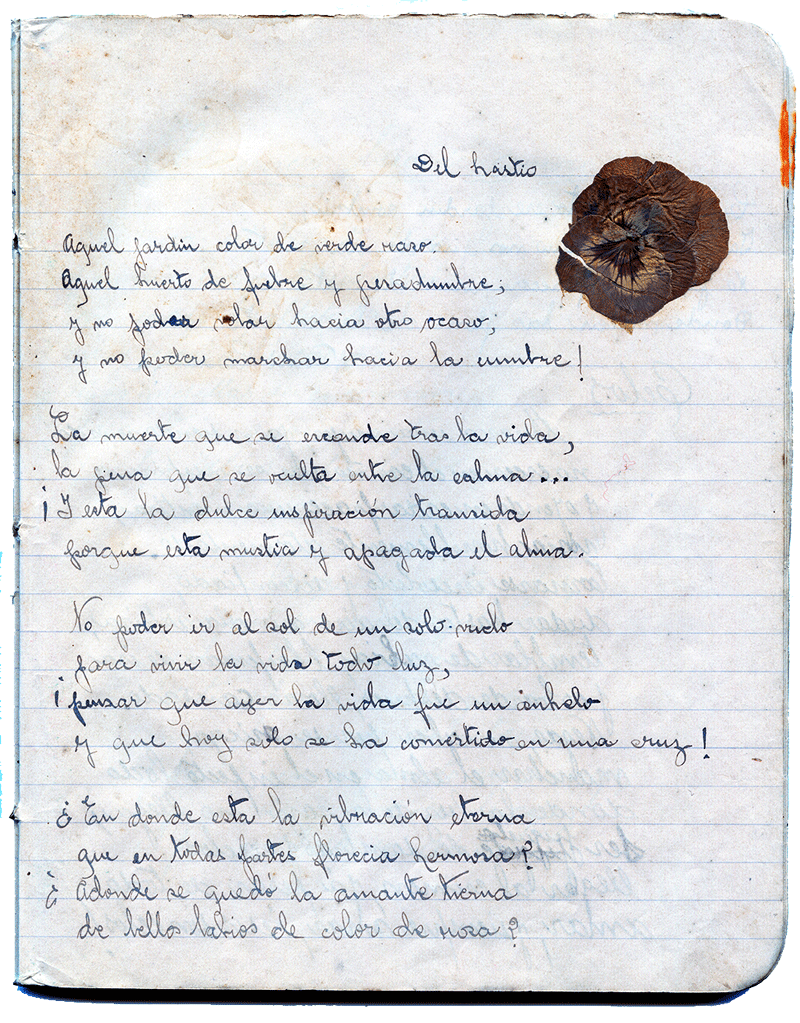 Del hastio
Aquel jardin color de verde raso.
Aquel huerto de fiebre y pesadumbre;
y no poder volar hacia otro ocaso;
y no poder marchar hacia la cumbre!
La muerte que se esconde tras la vida,
la pena que se oculta entre la calma...
¡Y esta la dulce inspiración transida
porque esta mustia y apagada el alma.
No poder ir al sol de un solo vuelo
para vivir la vida todo luz,
¡pensar que ayer la vida fue un anhelo
y que hoy solo se ha convertido en una cruz!
¿En donde esta la vibración eterna
que en todas partes florecia hermosa?
¿Adonde se quedó la amante tierna
de bellos labios de color de rosa?